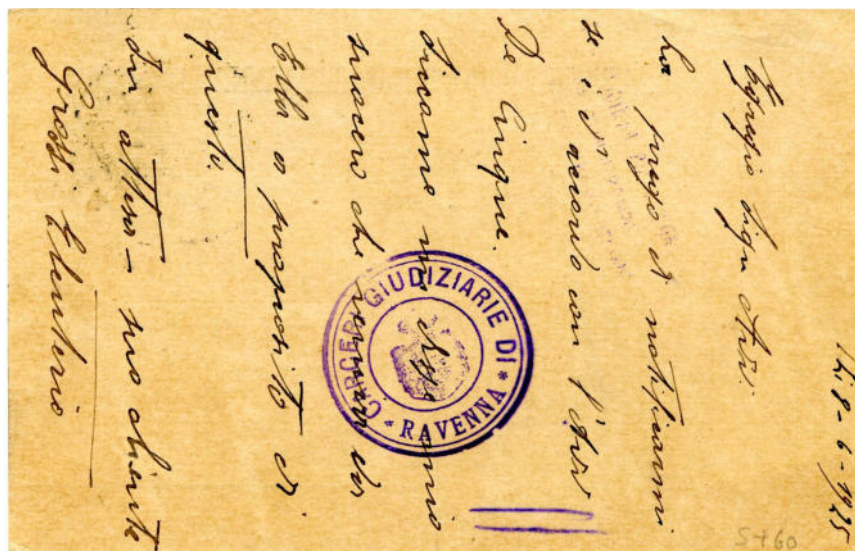 li 8-6-1925
Egregio Sign. Avv.
La prego di notificarmi
se è d'accordo con l'Avv
De Cinque.
suocero che
Ella a proposito di
questo.
In attesa - suo cliente
Grossi Eleuterio
CARCERI GIUDIZIARIE DI
* RAVENNA *
5+60